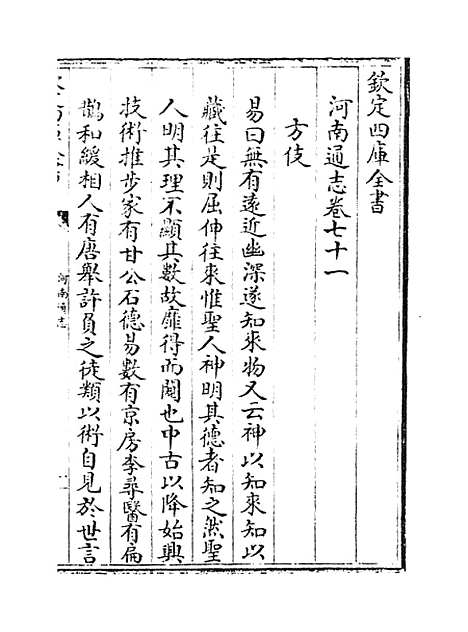 欽定四庫全書
河南通志卷七十一
方伎
易曰無有遠近幽深遂知來物又云神以知來知以
藏往是則屈伸往來惟聖人神明其德者知之然聖
人明其理不顯其數故靡得而聞也中古以降始興
技術推步家有甘公石德易數有京房李尋醫有扁
鵲和緩相人有唐舉許負之徒類以術自見於世言
河南通志